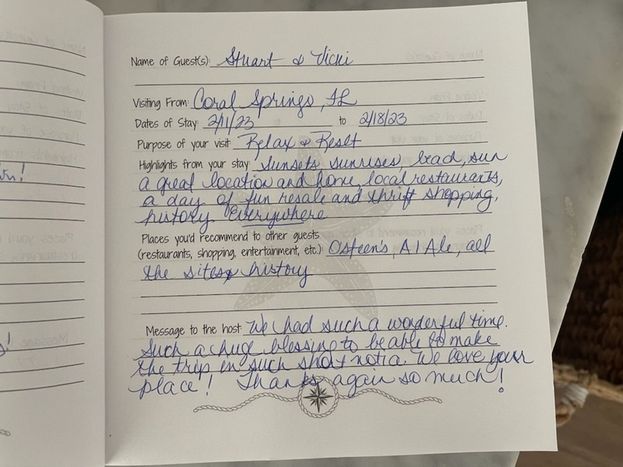 Name of Guest(s) Stuart & Vicki
Visiting From Coral Springs, FL
Dates of Stay 2/11/23 to 2/18/23
Purpose of your visit Relax & Reset
Highlights from your stay Sunsets, sunrises, beach, sun
a great location and home, local restaurants,
a day of fun resale and thrift shopping,
history everywhere
Places you'd recommend to other guests
(restaurants, shopping, entertainment, etc.) Osteen's, A1 Ale, all
the sites, history
Message to the host We had such a wonderful time.
Such a huge blessing to be able to make
the trip in such short notice. We love your
place! Thanks again so much!